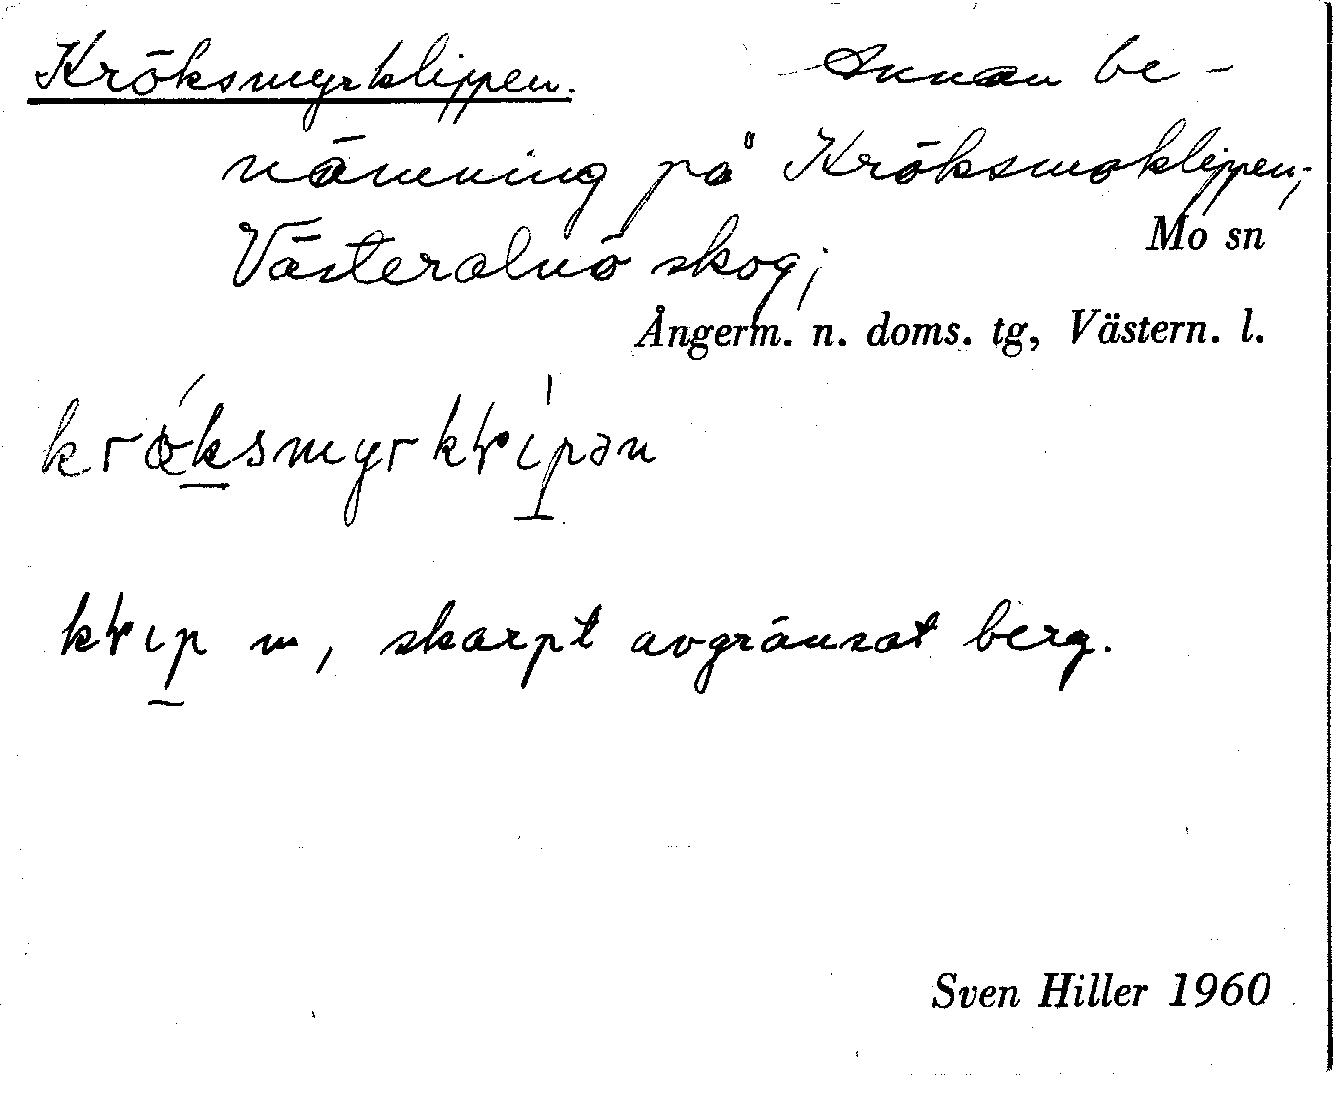 Kröksmyrklippen. Annan be-
nämning på Kröksmoklippen;
Mo sn
Västeralnö skog;
Ångerm. n. doms. tg, Västern. l.
skarpt avgränsat berg.
Sven Hiller 1960